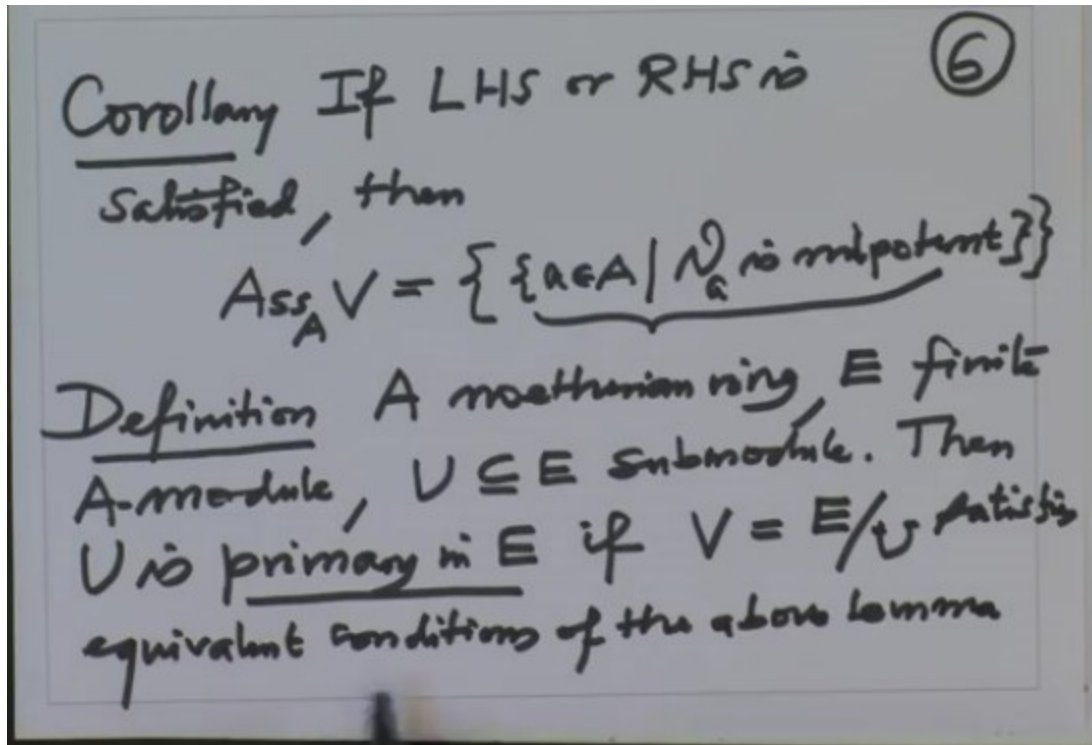 Corollary If LHS or RHS is ⑥
satisfied, then
Ass_A V = { {a∈A | ν_a is nilpotent} }
Definition A noetherian ring, E finite
A-module, U ⊆ E submodule. Then
U is primary in E if V = E/U satisfies
equivalent conditions of the above lemma